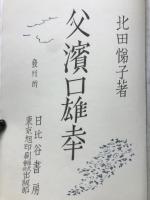 北田悌子著
父濱口雄幸
發行所
日比谷書房
東京旭印刷株式出版部